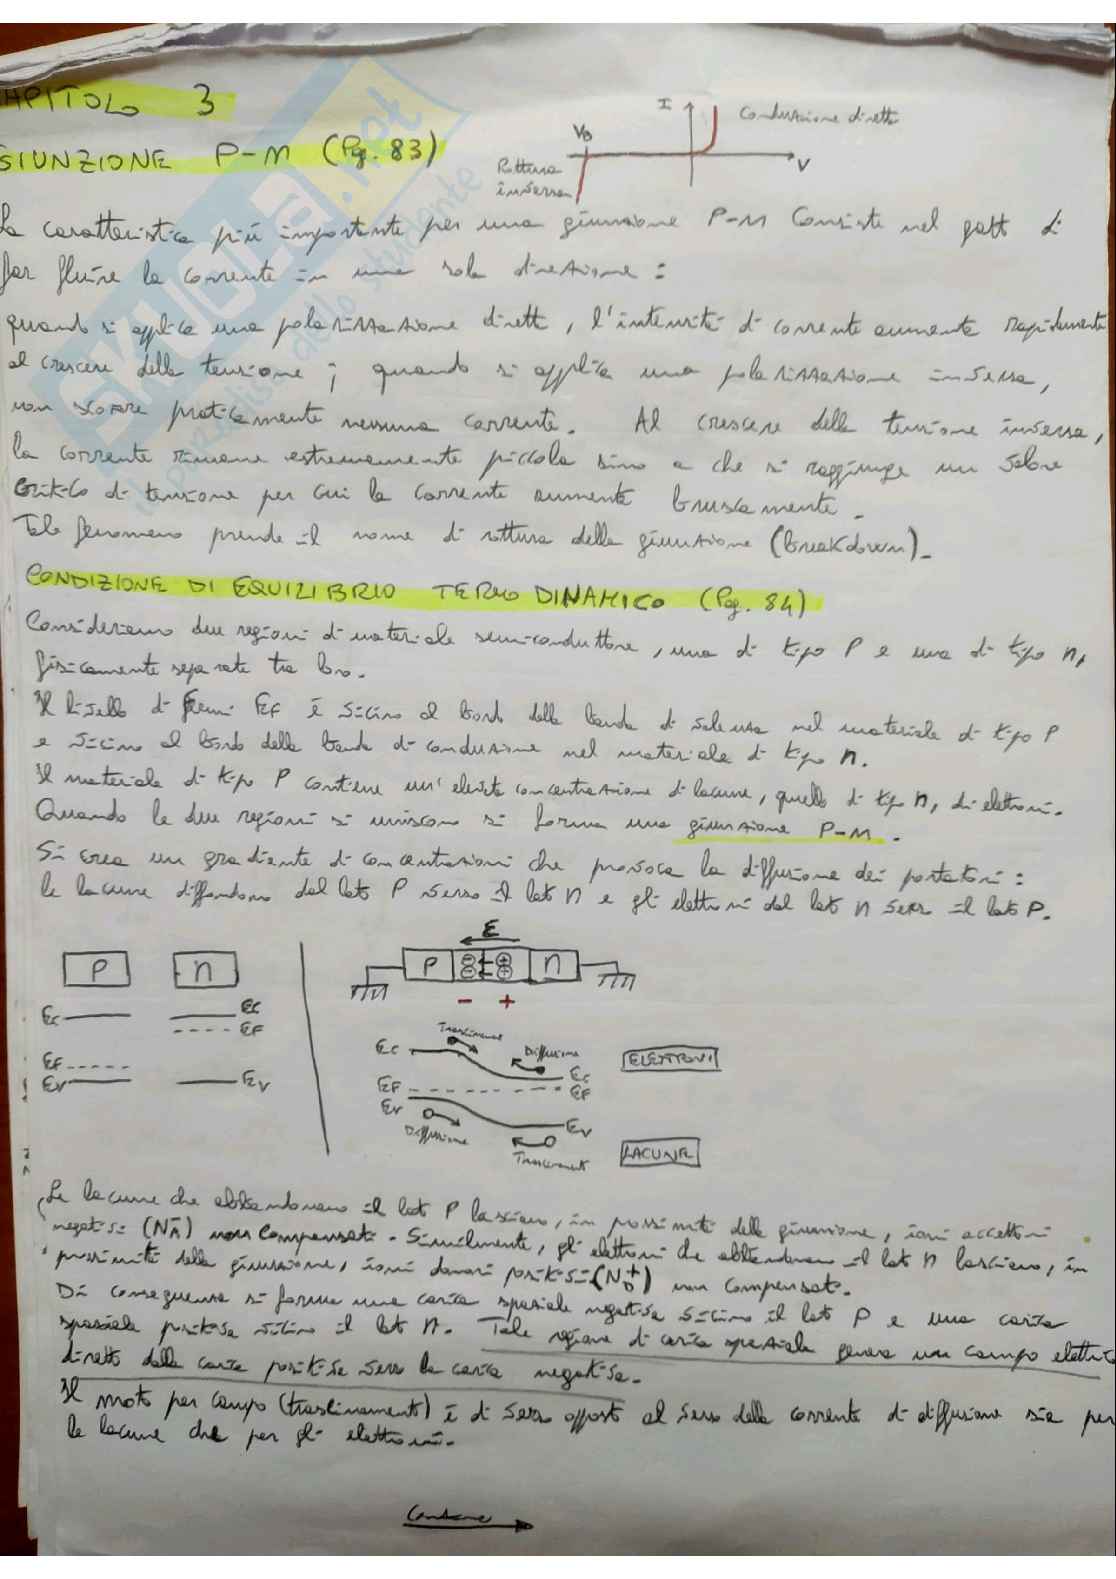 CAPITOLO 3
GIUNZIONE P-M (Pg. 83)
I
Conduzione diretta
VB
V
Rottura
inversa
La caratteristica più importante per una giunzione P-M consiste nel fatt di
far fluire la corrente in una sola direzione :
quando si applica una polarizzazione dirett , l'intensità di corrente aumenta rapidamente
al crescere della tensione ; quando si applica una polarizzazione inversa,
non scorre praticamente nessuna corrente. Al crescere della tensione inversa,
la corrente rimane estremamente piccola sino a che si raggiunge un valore
critico di tensione per cui la corrente aumenta bruscamente.
Tale fenomeno prende il nome di rottura della giunzione (breakdown).
CONDIZIONE DI EQUILIBRIO TERMODINAMICO (Pag. 84)
Consideriamo due regioni di materiale semiconduttore, una di tipo P e una di tipo n,
fisicamente separate tra loro.
Il livello di Fermi EF è vicino al bordo della banda di valenza nel materiale di tipo P
e vicino al bordo della banda di conduzione nel materiale di tipo n.
Il materiale di tipo P contiene un'elevata concentrazione di lacune, quello di tipo n, di elettroni.
Quando le due regioni si uniscono si forma una giunzione P-M.
Si crea un gradiente di concentrazioni che provoca la diffusione dei portatori :
le lacune diffondono dal lato P verso il lato n e gli elettroni dal lato n verso il lato P.
P n
E
P n
- +
Ec Ec
EF
EF
Ev Ev
Trascinament
Diffusione
Ec Ec
EF EF
Ev Ev
Diffusione
Trascinament
ELETTRONI
LACUNE
Le lacune che abbandonano il lato P lasciano, in prossimità della giunzione, ioni accettori
negativi (NA-) non compensati. Similmente, gli elettroni che abbandonano il lato n lasciano, in
prossimità della giunzione, ioni donori positivi (ND+) non compensati.
Di conseguenza si forma una carica spaziale negativa vicino il lato P e una carica
spaziale positiva vicino il lato n. Tale regione di carica spaziale genera un campo elettrico
diretto dalla carica positiva verso la carica negativa.
Il moto per campo (trascinamento) è di verso opposto al verso della corrente di diffusione sia per
le lacune che per gli elettroni.
SKUOLA.net
il paradiso dello studente